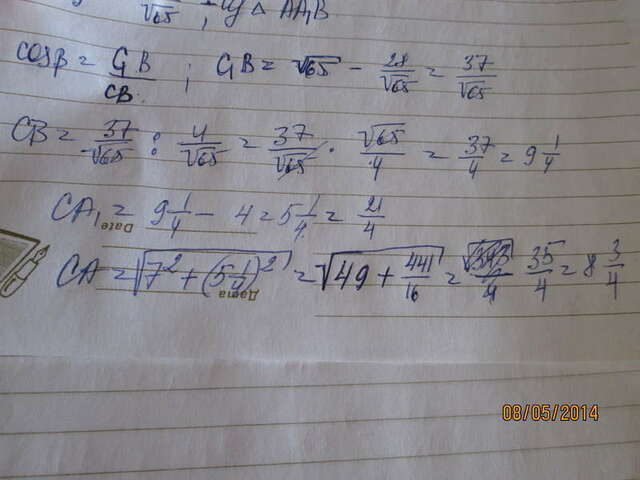 √65 ; tg △ AA₁B
cosβ = C₁B / CB ; C₁B = √65 - 28/√65 = 37/√65
CB = 37/√65 : 4/√65 = 37/√65 · √65/4 = 37/4 = 9 1/4
CA₁ = 9 1/4 - 4 = 5 1/4 = 21/4
Date
CA = √(7² + (5 1/4)²) = √(49 + 441/16) = 35/4 = 8 3/4
Дата
08/05/2014